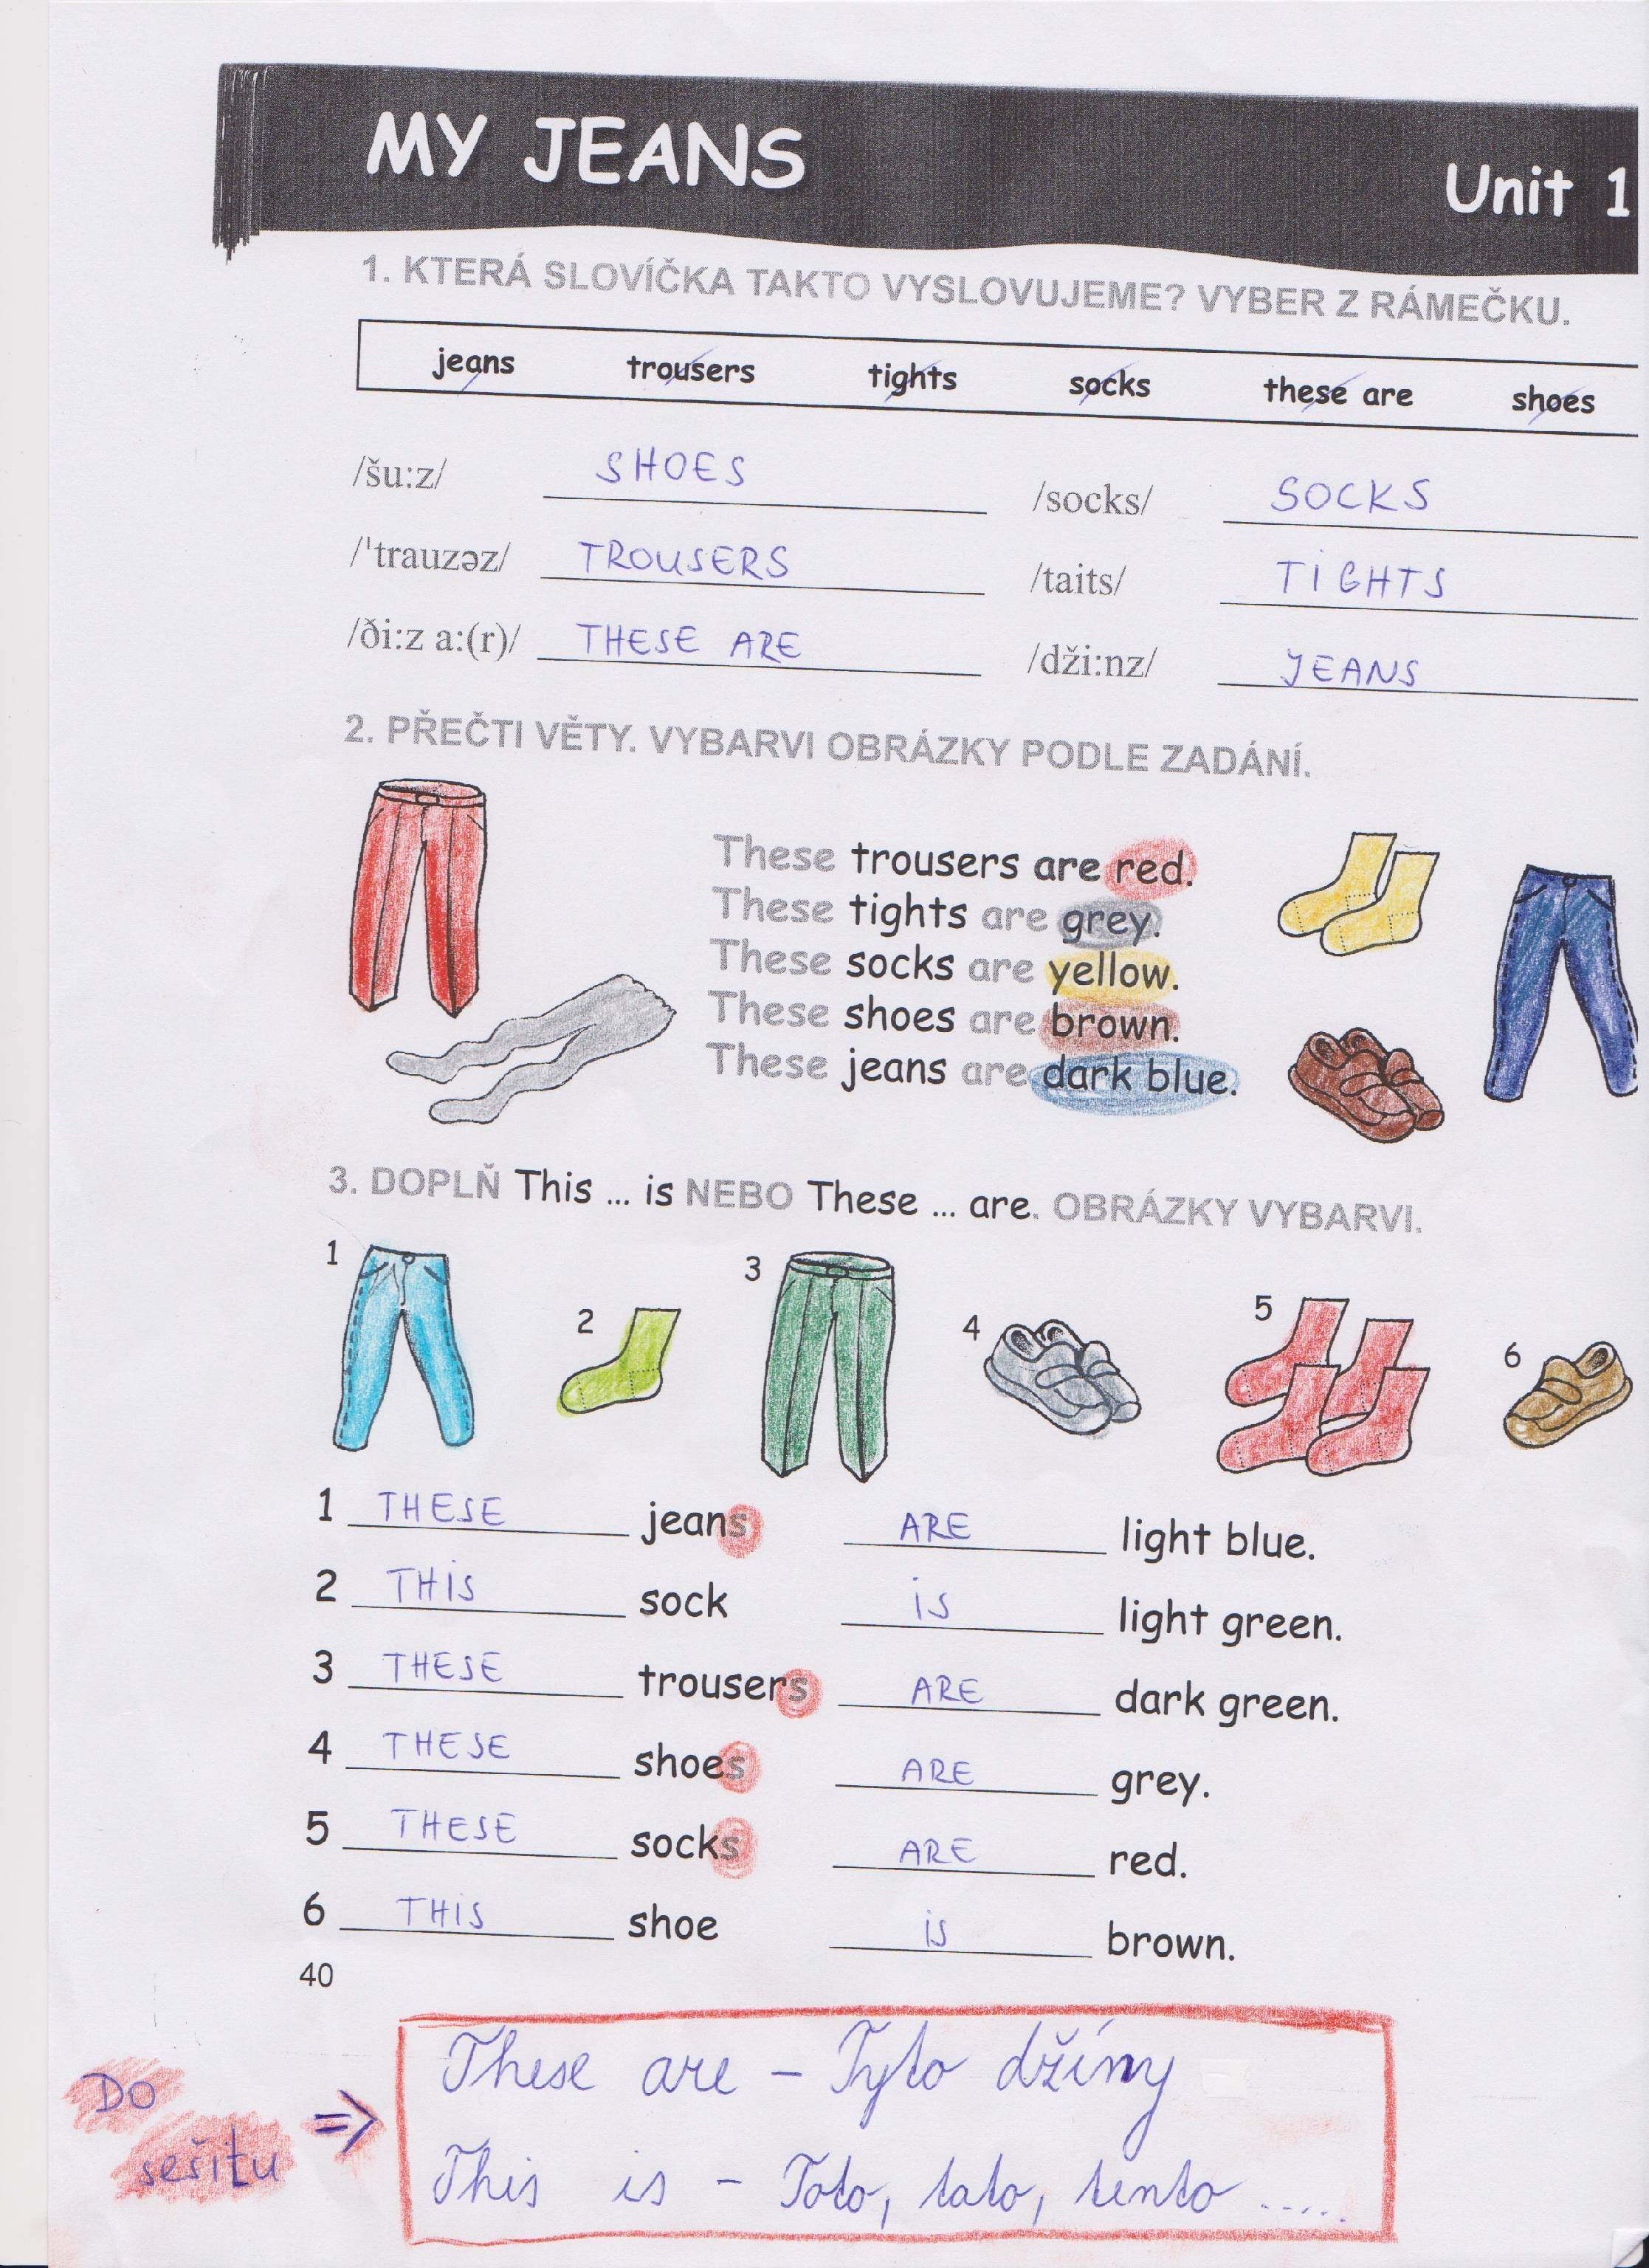 MY JEANS
Unit 1
1. KTERÁ SLOVÍČKA TAKTO VYSLOVUJEME? VYBER Z RÁMEČKU.
jeans trousers tights socks these are shoes
/šu:z/ SHOES /socks/ SOCKS
/'trauzəz/ TROUSERS /taits/ TIGHTS
/ði:z a:(r)/ THESE ARE /dži:nz/ JEANS
2. PŘEČTI VĚTY. VYBARVI OBRÁZKY PODLE ZADÁNÍ.
These trousers are red.
These tights are grey.
These socks are yellow.
These shoes are brown.
These jeans are dark blue.
3. DOPLŇ This ... is NEBO These ... are. OBRÁZKY VYBARVI.
1 2 3 4 5 6
1 THESE jeans ARE light blue.
2 THIS sock IS light green.
3 THESE trousers ARE dark green.
4 THESE shoes ARE grey.
5 THESE socks ARE red.
6 THIS shoe IS brown.
40
These are – Tyto džíny
This is – Toto, tato, tento .....
DO
sešitu ⇒